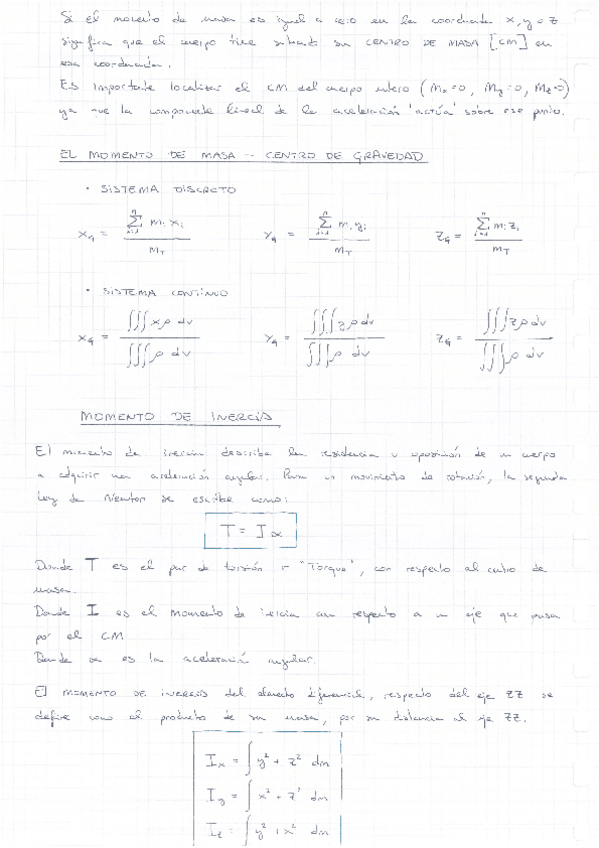 Si el momento de masa es igual a cero en la coordenada x, y o z
significa que el cuerpo tiene situado su CENTRO DE MASA [CM] en
esa coordenada.
Es importante localizar el CM del cuerpo entero (Mx=0, My=0, Mz=0)
ya que la componente lineal de la aceleración 'actúa' sobre ese punto.
EL MOMENTO DE MASA - CENTRO DE GRAVEDAD
· SISTEMA DISCRETO
x_G = Σ_{i=1}^{n} m_i x_i / m_T   y_G = Σ_{i=1}^{n} m_i y_i / m_T   z_G = Σ_{i=1}^{n} m_i z_i / m_T
· SISTEMA CONTINUO
x_G = ∭ x ρ dv / ∭ ρ dv   y_G = ∭ y ρ dv / ∭ ρ dv   z_G = ∭ z ρ dv / ∭ ρ dv
MOMENTO DE INERCIA
El momento de inercia describe la resistencia u oposición de un cuerpo
a adquirir una aceleración angular. Para un movimiento de rotación, la segunda
ley de Newton se escribe como:
T = I α
Donde T es el par de torsión o "Torque", con respecto al centro de
masa.
Donde I es el momento de inercia con respecto a un eje que pasa
por el CM
Donde α es la aceleración angular.
El MOMENTO DE INERCIA del elemento diferencial, respecto del eje ZZ se
define como el producto de su masa, por su distancia al eje ZZ.
I_x = ∫ y² + z² dm
I_y = ∫ x² + z² dm
I_z = ∫ y² + x² dm